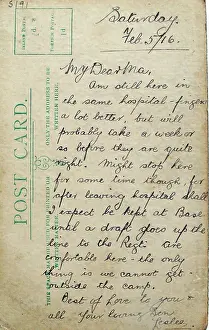 Saturday
Feb. 5/16.
My Dear Ma,
Am still here in
the same hospital - finger
a lot better, but will
probably take a week or
so before they are quite
right. Might stop here
for some time though, for
after leaving hospital shall
I expect be kept at Base
until a draft goes up the
line to the Regt. Are
comfortable here - the only
thing is we cannot get
outside the camp.
Best of love to you &
all Your loving Son
POST CARD.
THE ADDRESS TO BE